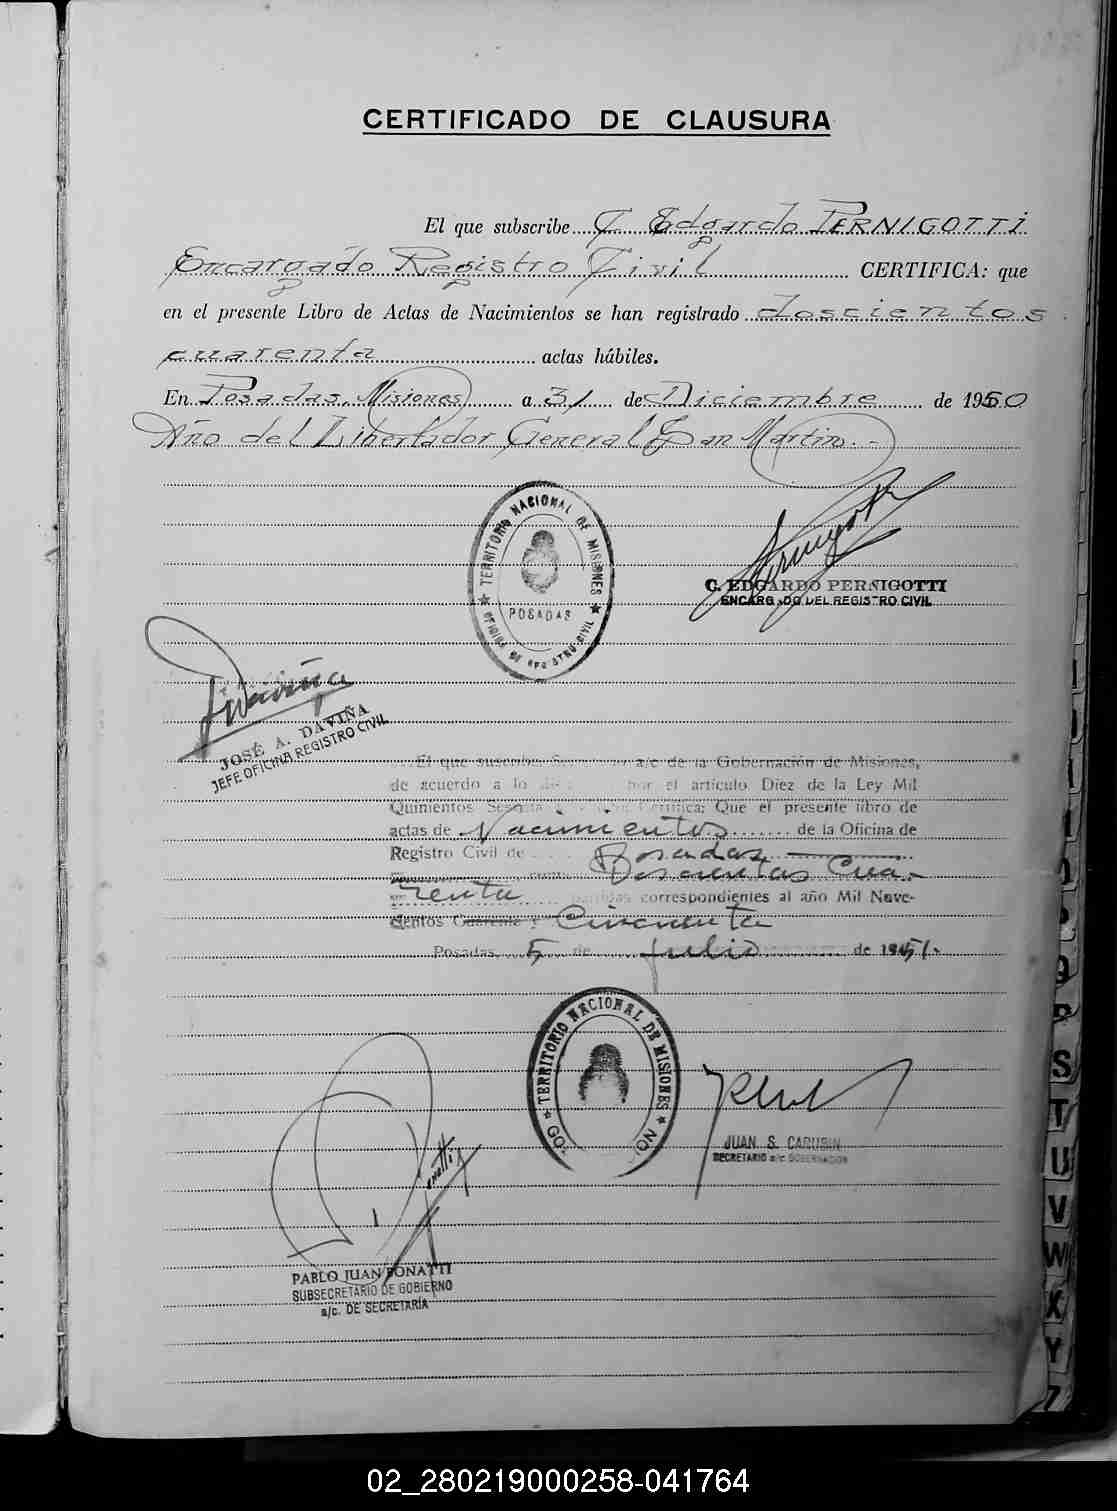 CERTIFICADO DE CLAUSURA
El que subscribe C. Edgardo PERNIGOTTI
Encargado Registro Civil CERTIFICA: que
en el presente Libro de Actas de Nacimientos se han registrado doscientos
cuarenta actas hábiles.
En Posadas, Misiones a 31 de Diciembre de 1950
Año del Libertador General San Martín.-
TERRITORIO NACIONAL DE MISIONES
POSADAS
OFICINA DE REGISTRO CIVIL
C. EDGARDO PERNIGOTTI
ENCARGADO DEL REGISTRO CIVIL
JOSÉ A. DAVIÑA
JEFE OFICINA REGISTRO CIVIL
El que suscribe, a/c de la Gobernación de Misiones,
de acuerdo a lo por el artículo Diez de la Ley Mil
Quinientos Certifica: Que el presente libro de
actas de Nacimientos de la Oficina de
Registro Civil de Posadas
Doscientas Cua-
renta partidas correspondientes al año Mil Nove-
cientos Cuarenta y Cincuenta
Posadas, 5 de julio de 1951.
TERRITORIO NACIONAL DE MISIONES
JUAN S. CARUSIN
SECRETARIO a/c GOBERNACION
PABLO JUAN BONATTI
SUBSECRETARIO DE GOBIERNO
a/c. DE SECRETARÍA
S
T
U
V
W
X
Y
Z
02_280219000258-041764